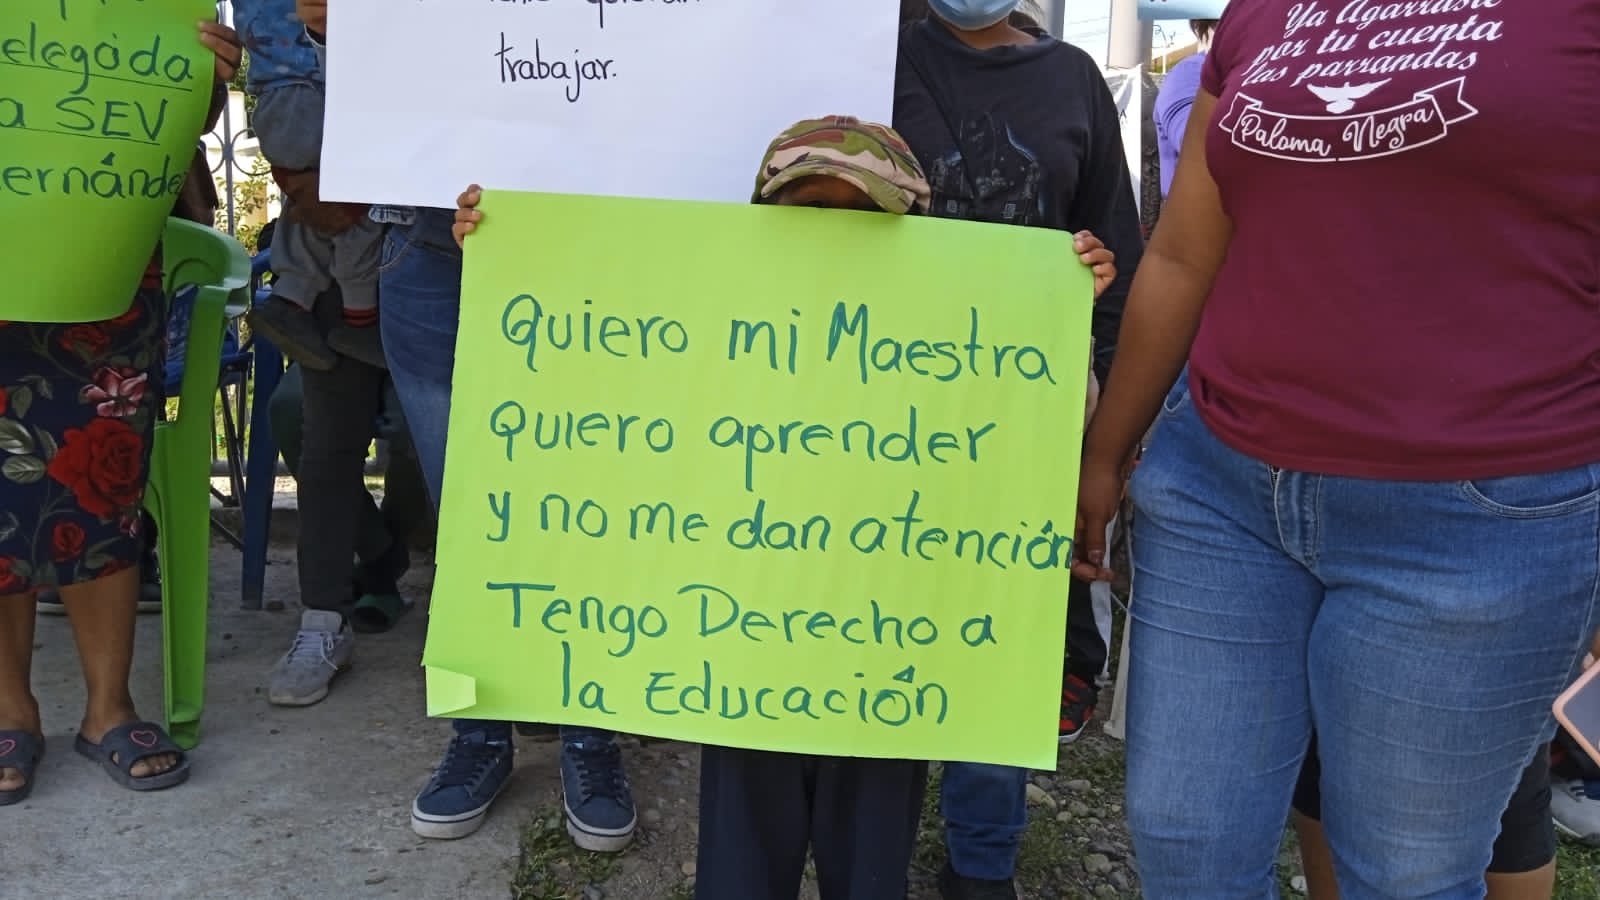 elegada
a SEV
trabajar.
Ya Agarraste
por tu cuenta
las parrandas
Paloma Negra
Quiero mi Maestra
quiero aprender
y no me dan atención
Tengo Derecho a
la Educación